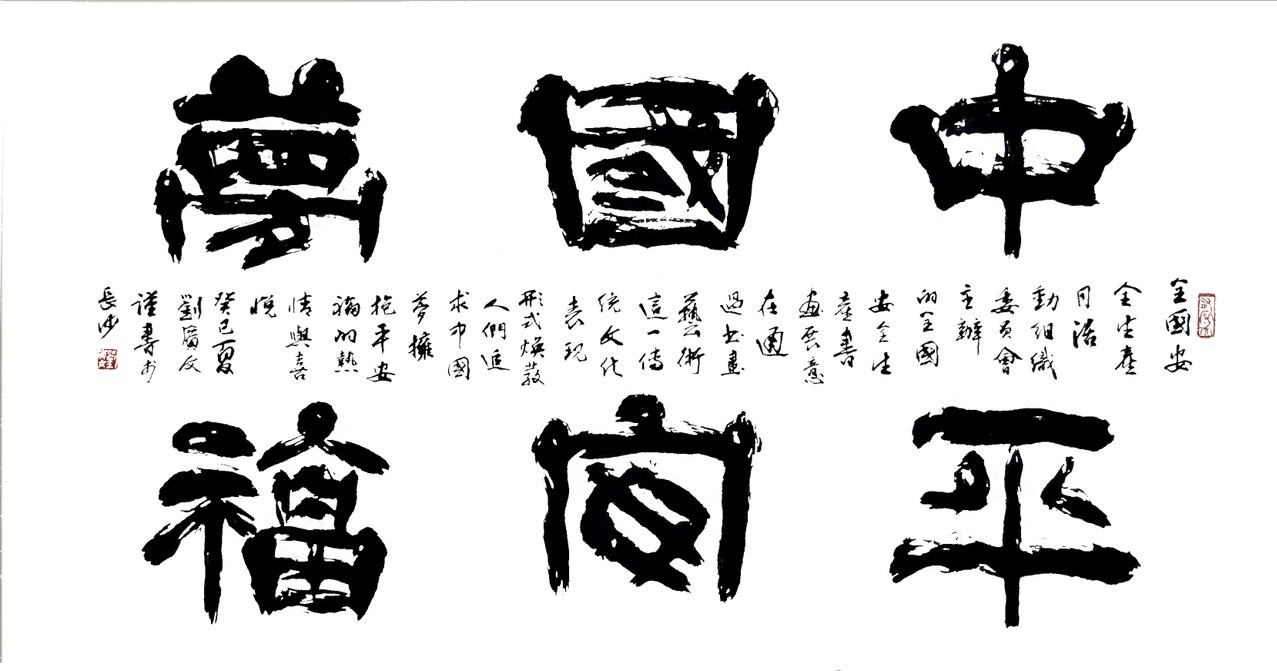 中國夢
平安福
全國安
全生產
月活
動組織
委員會
主辦
的全國
安全生
產書
畫展意
在通
過書畫
藝術
這一傳
統文化
表現
形式煥發
人們追
求中國
夢擁
抱平安
福的熱
情與喜
悅
癸巳夏
劉廣文
謹書於
長沙